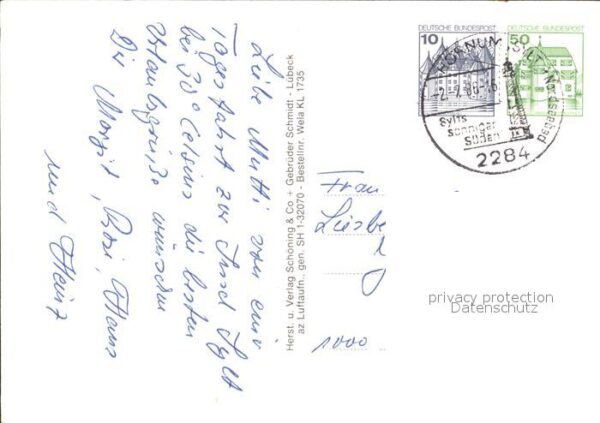 Liebe Mutti von einer
Tagesfahrt zur Insel Sylt
bei 30° Celsius die besten
Urlaubsgrüße wünschen
Dir Margit, Rosi, Hans
und Heinz
Herst. u. Verlag Schöning & Co + Gebrüder Schmidt - Lübeck
az Luftaufn., gen. SH 1-32070 - Bestellnr. Wela KL 1735
DEUTSCHE BUNDESPOST
10
DEUTSCHE BUNDESPOST
50
HÖRNUM, SYLT Nordseebad
Sylts
sonniger
Süden
2284
Frau
1000
privacy protection
Datenschutz